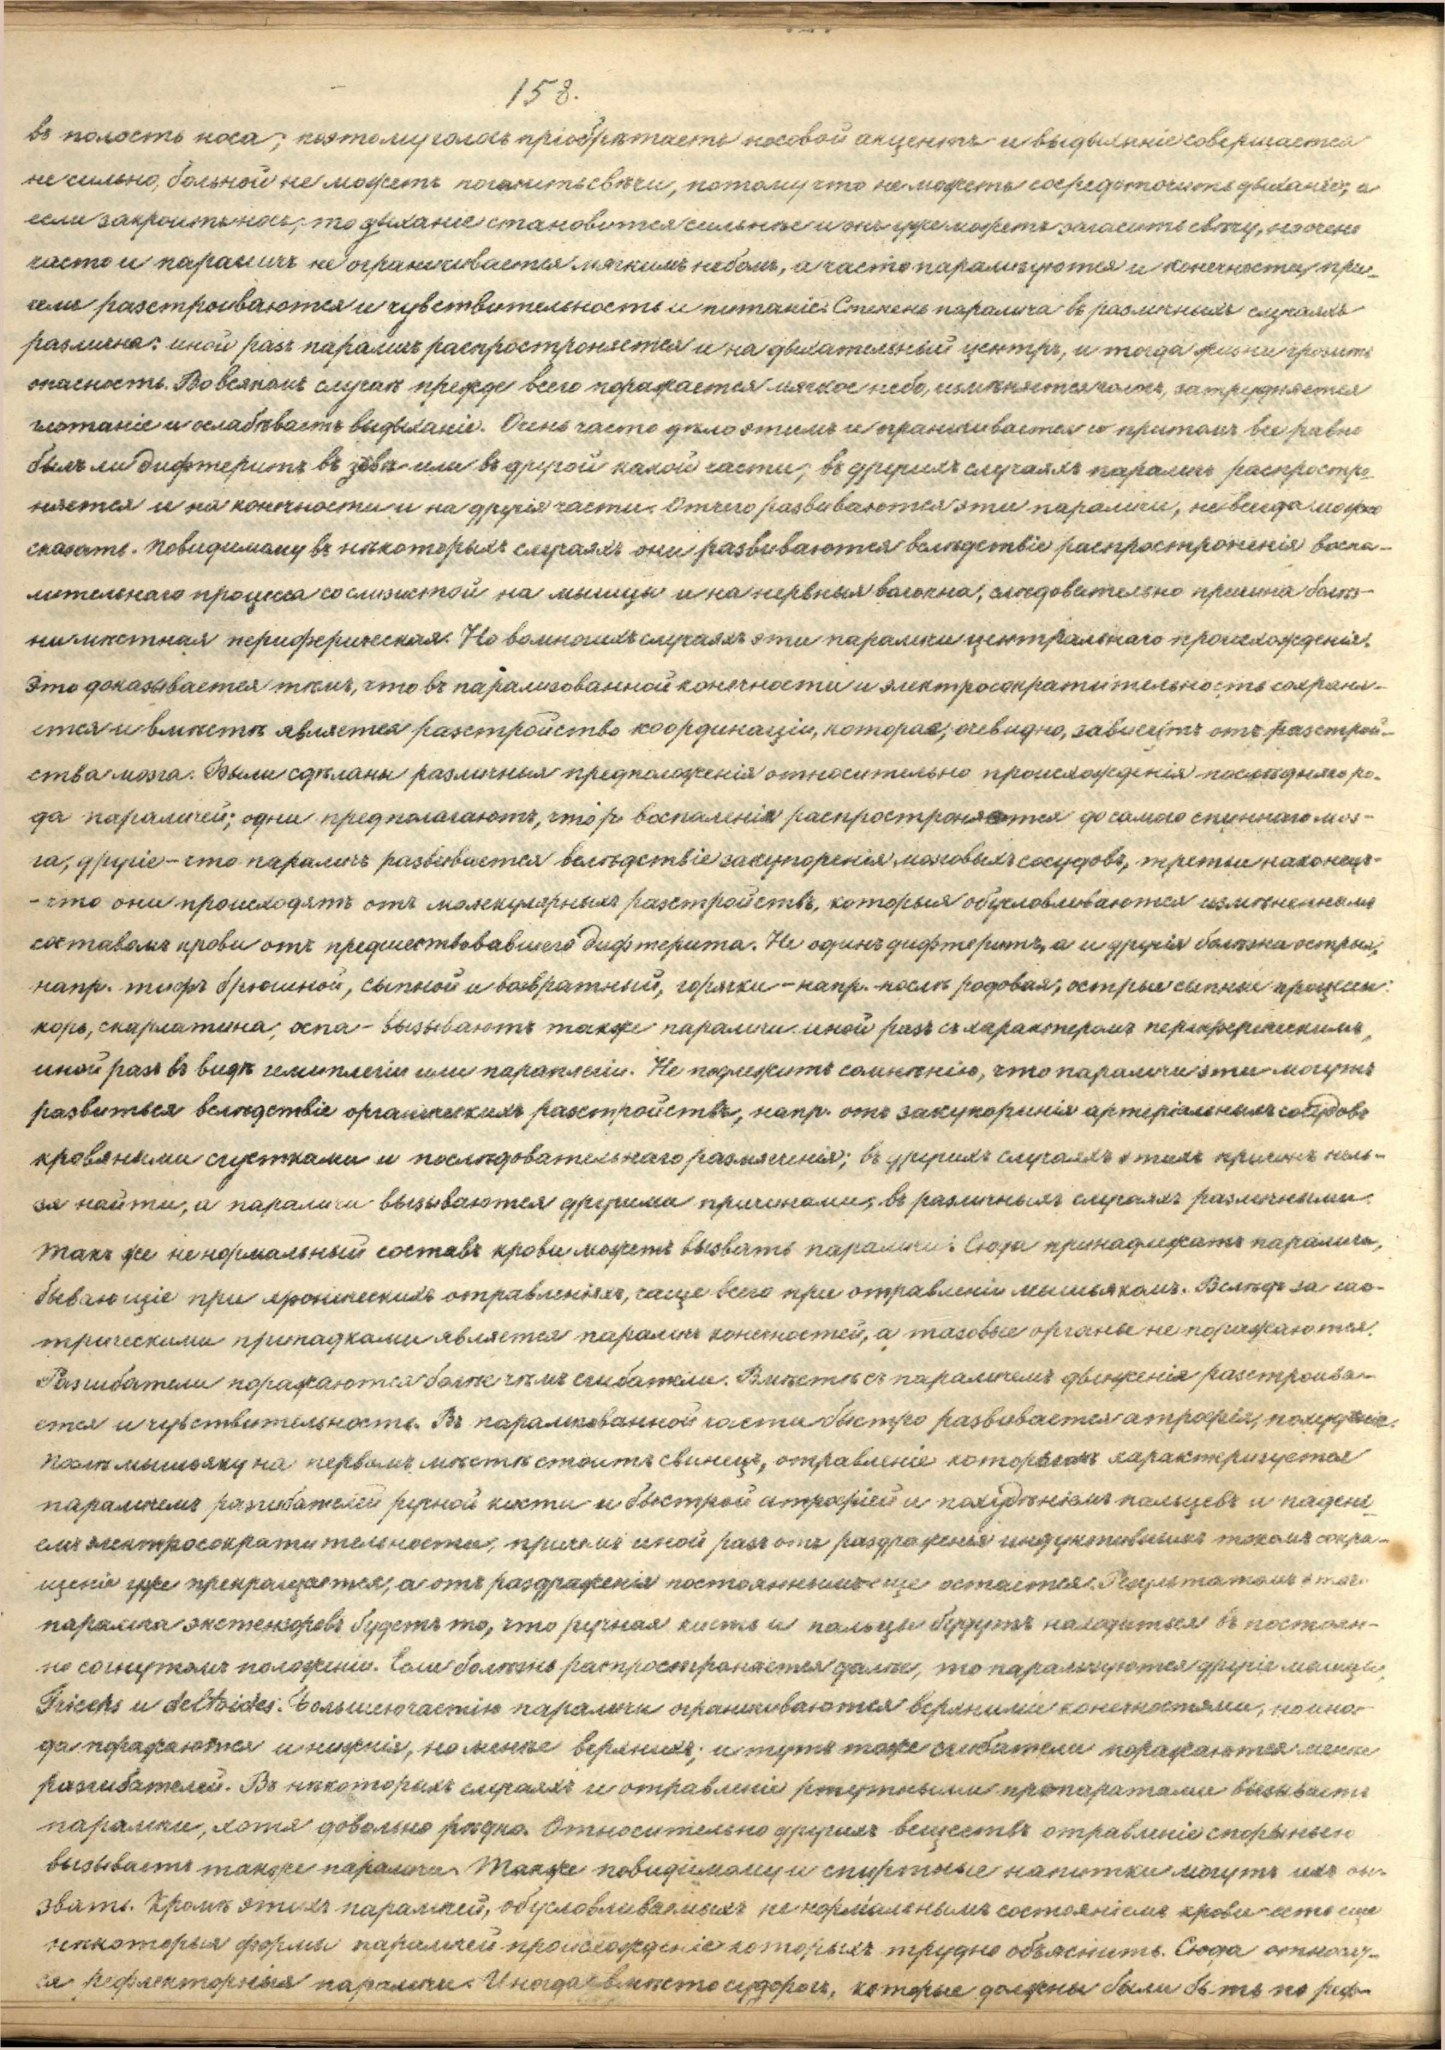 158.
въ полость носа; поэтому голосъ пріобрѣтаетъ носовой акцентъ и выдыханіе совершается
не сильно, больной не можетъ погасить свѣчи, потому что не можетъ сосредоточить дыханіе, а
если закроитъ носъ, то дыханіе становится сильнѣе и онъ уже можетъ загасить свѣчу, но очень
часто и параличъ не ограничивается мягкимъ небомъ, а часто парализуются и конечности, при-
чемъ разстроиваются и чувствительность и питаніе. Степень паралича въ различныхъ случаяхъ
различна: иной разъ параличъ распространяется и на дыхательный центръ, и тогда жизни грозитъ
опасность. Во всякомъ случаѣ прежде всего поражается мягкое небо, измѣняется голосъ, затрудняется
глотаніе и ослабѣваетъ выдыханіе. Очень часто дѣло этимъ и ограничивается и притомъ все равно
былъ ли дифтеритъ въ зѣвѣ или въ другой какой части; въ другихъ случаяхъ параличъ распростра-
няется и на конечности и на другія части. Отчего развиваются эти параличи, не всегда можно
сказать. Повидимому въ нѣкоторыхъ случаяхъ они развиваются вслѣдствіе распространенія воспа-
лительнаго процесса со слизистой на мышцы и на нервныя волокна, слѣдовательно причина болѣз-
ни мѣстная периферическая. Но во многихъ случаяхъ эти параличи центральнаго происхожденія.
Это доказывается тѣмъ, что въ парализованной конечности и электросократительность сохраня-
ется и вмѣстѣ является разстройство координаціи, которая, очевидно, зависитъ отъ разстрой-
ства мозга. Были сдѣланы различныя предположенія относительно происхожденія послѣдняго ро-
да параличей; одни предполагаютъ, что воспаленія распространяются до самого спиннаго моз-
га, другіе - что параличъ развивается вслѣдствіе закупоренія мозговыхъ сосудовъ, третьи наконецъ-
- что они происходятъ отъ молекулярныхъ разстройствъ, которыя обусловливаются измѣненнымъ
составомъ крови отъ предшествовавшего дифтерита. Не одинъ дифтеритъ, а и другія болѣзни острыя,
напр. тифъ брюшной, сыпной и возвратный, горячки - напр. послѣ родовая, острые сыпные процессы:
корь, скарлатина, оспа - вызываютъ также параличи иной разъ съ характеромъ периферическимъ,
иной разъ въ видѣ гемиплегіи или параплегіи. Не подлежитъ сомнѣнію, что параличи эти могутъ
развиться вслѣдствіе органическихъ разстройствъ, напр. отъ закупоринія артеріальныхъ сосудовъ
кровяными сгустками и послѣдовательнаго размягченія; въ другихъ случаяхъ этихъ причинъ нель-
зя найти, и параличи вызываются другими причинами, въ различныхъ случаяхъ различными.
Такъ же не нормальный составъ крови можетъ вызвать параличи. Сюда принадлежатъ параличи,
бывающіе при хроническихъ отравленіяхъ, чаще всего при отравленіи мышьякомъ. Вслѣдъ за гас-
трическими припадками является параличъ конечностей, а тазовые органы не поражаются.
Разгибатели поражаются болѣе чѣмъ сгибатели. Вмѣстѣ съ параличемъ движенія разстроива-
ется и чувствительность. Въ парализованной части быстро развивается атрофія, похуденіе.
Послѣ мышьяку на первомъ мѣстѣ стоитъ свинецъ, отравленіе которымъ характеризуется
параличемъ разгибателей ручной кисти и быстрой атрофіей и похуденіемъ пальцевъ и падені-
емъ электросократительности, причемъ иной разъ отъ раздраженія индуктивнымъ токомъ сокра-
щеніе уже прекращается, а отъ раздраженія постояннымъ еще остается. Результатомъ этого
паралича экстензоровъ будетъ то, что ручная кисть и пальцы будутъ находиться въ постоян-
но согнутомъ положеніи. Если болѣзнь распространяется далѣе, то парализуются другіе мышцы,
Triceps и deltoides. Большею частію параличи ограничиваются верхними конечностями, но иног-
да поражаются и нижнія, но менѣе верхнихъ; и тутъ тоже сгибатели поражаются менѣе
разгибателей. Въ нѣкоторыхъ случаяхъ и отравленіе ртутными препаратами вызываетъ
параличи, хотя довольно рѣдко. Относительно другихъ веществъ отравленіе спорыньею
вызываетъ также параличи. Также повидимому и спиртные напитки могутъ ихъ вы-
звать. Кромѣ этихъ параличей, обусловливаемыхъ не нормальнымъ состояніемъ крови есть еще
нѣкоторыя формы параличей происхожденіе которыхъ трудно объяснить. Сюда относят-
ся рефлекторныя параличи. Иногда вмѣсто судорогъ, которые должны были быть по реф-